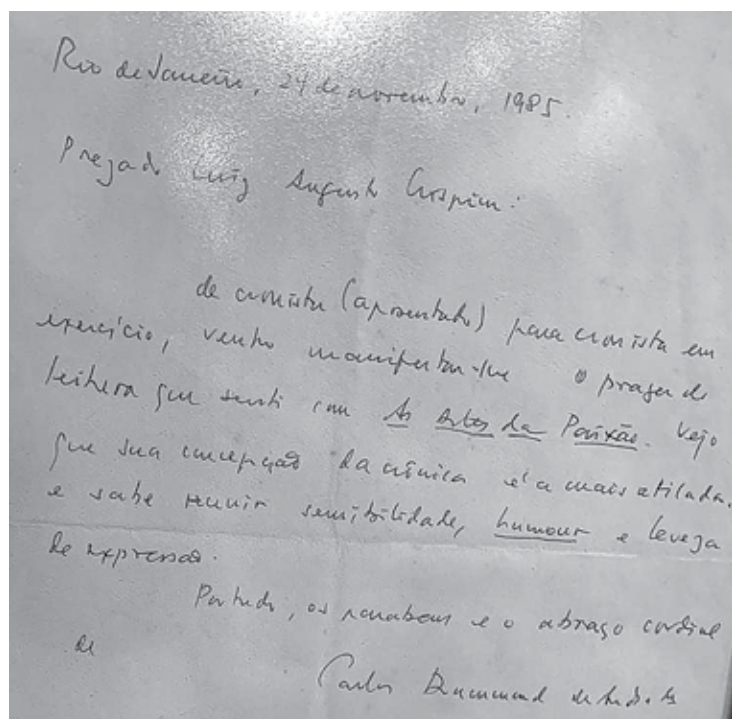 Rio de Janeiro, 24 de novembro, 1985.
Prezado Luiz Augusto Crispim:
de cronista (aposentado) para cronista em
exercício, venho manifestar-lhe o prazer de
leitura que senti com As Artes da Paixão. Vejo
que sua concepção da crônica é a mais atilada.
e sabe reunir sensibilidade, humour e leveza
de expressão.
Por tudo, os parabens e o abraço cordial
de
Carlos Drummond de Andrade